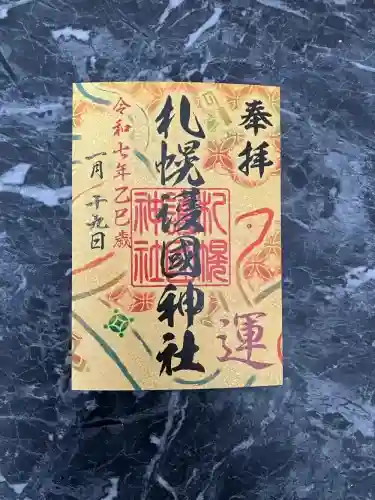 奉拝
札幌護國神社
札幌護國神社
運
令和七年乙巳歳
一月二十九日